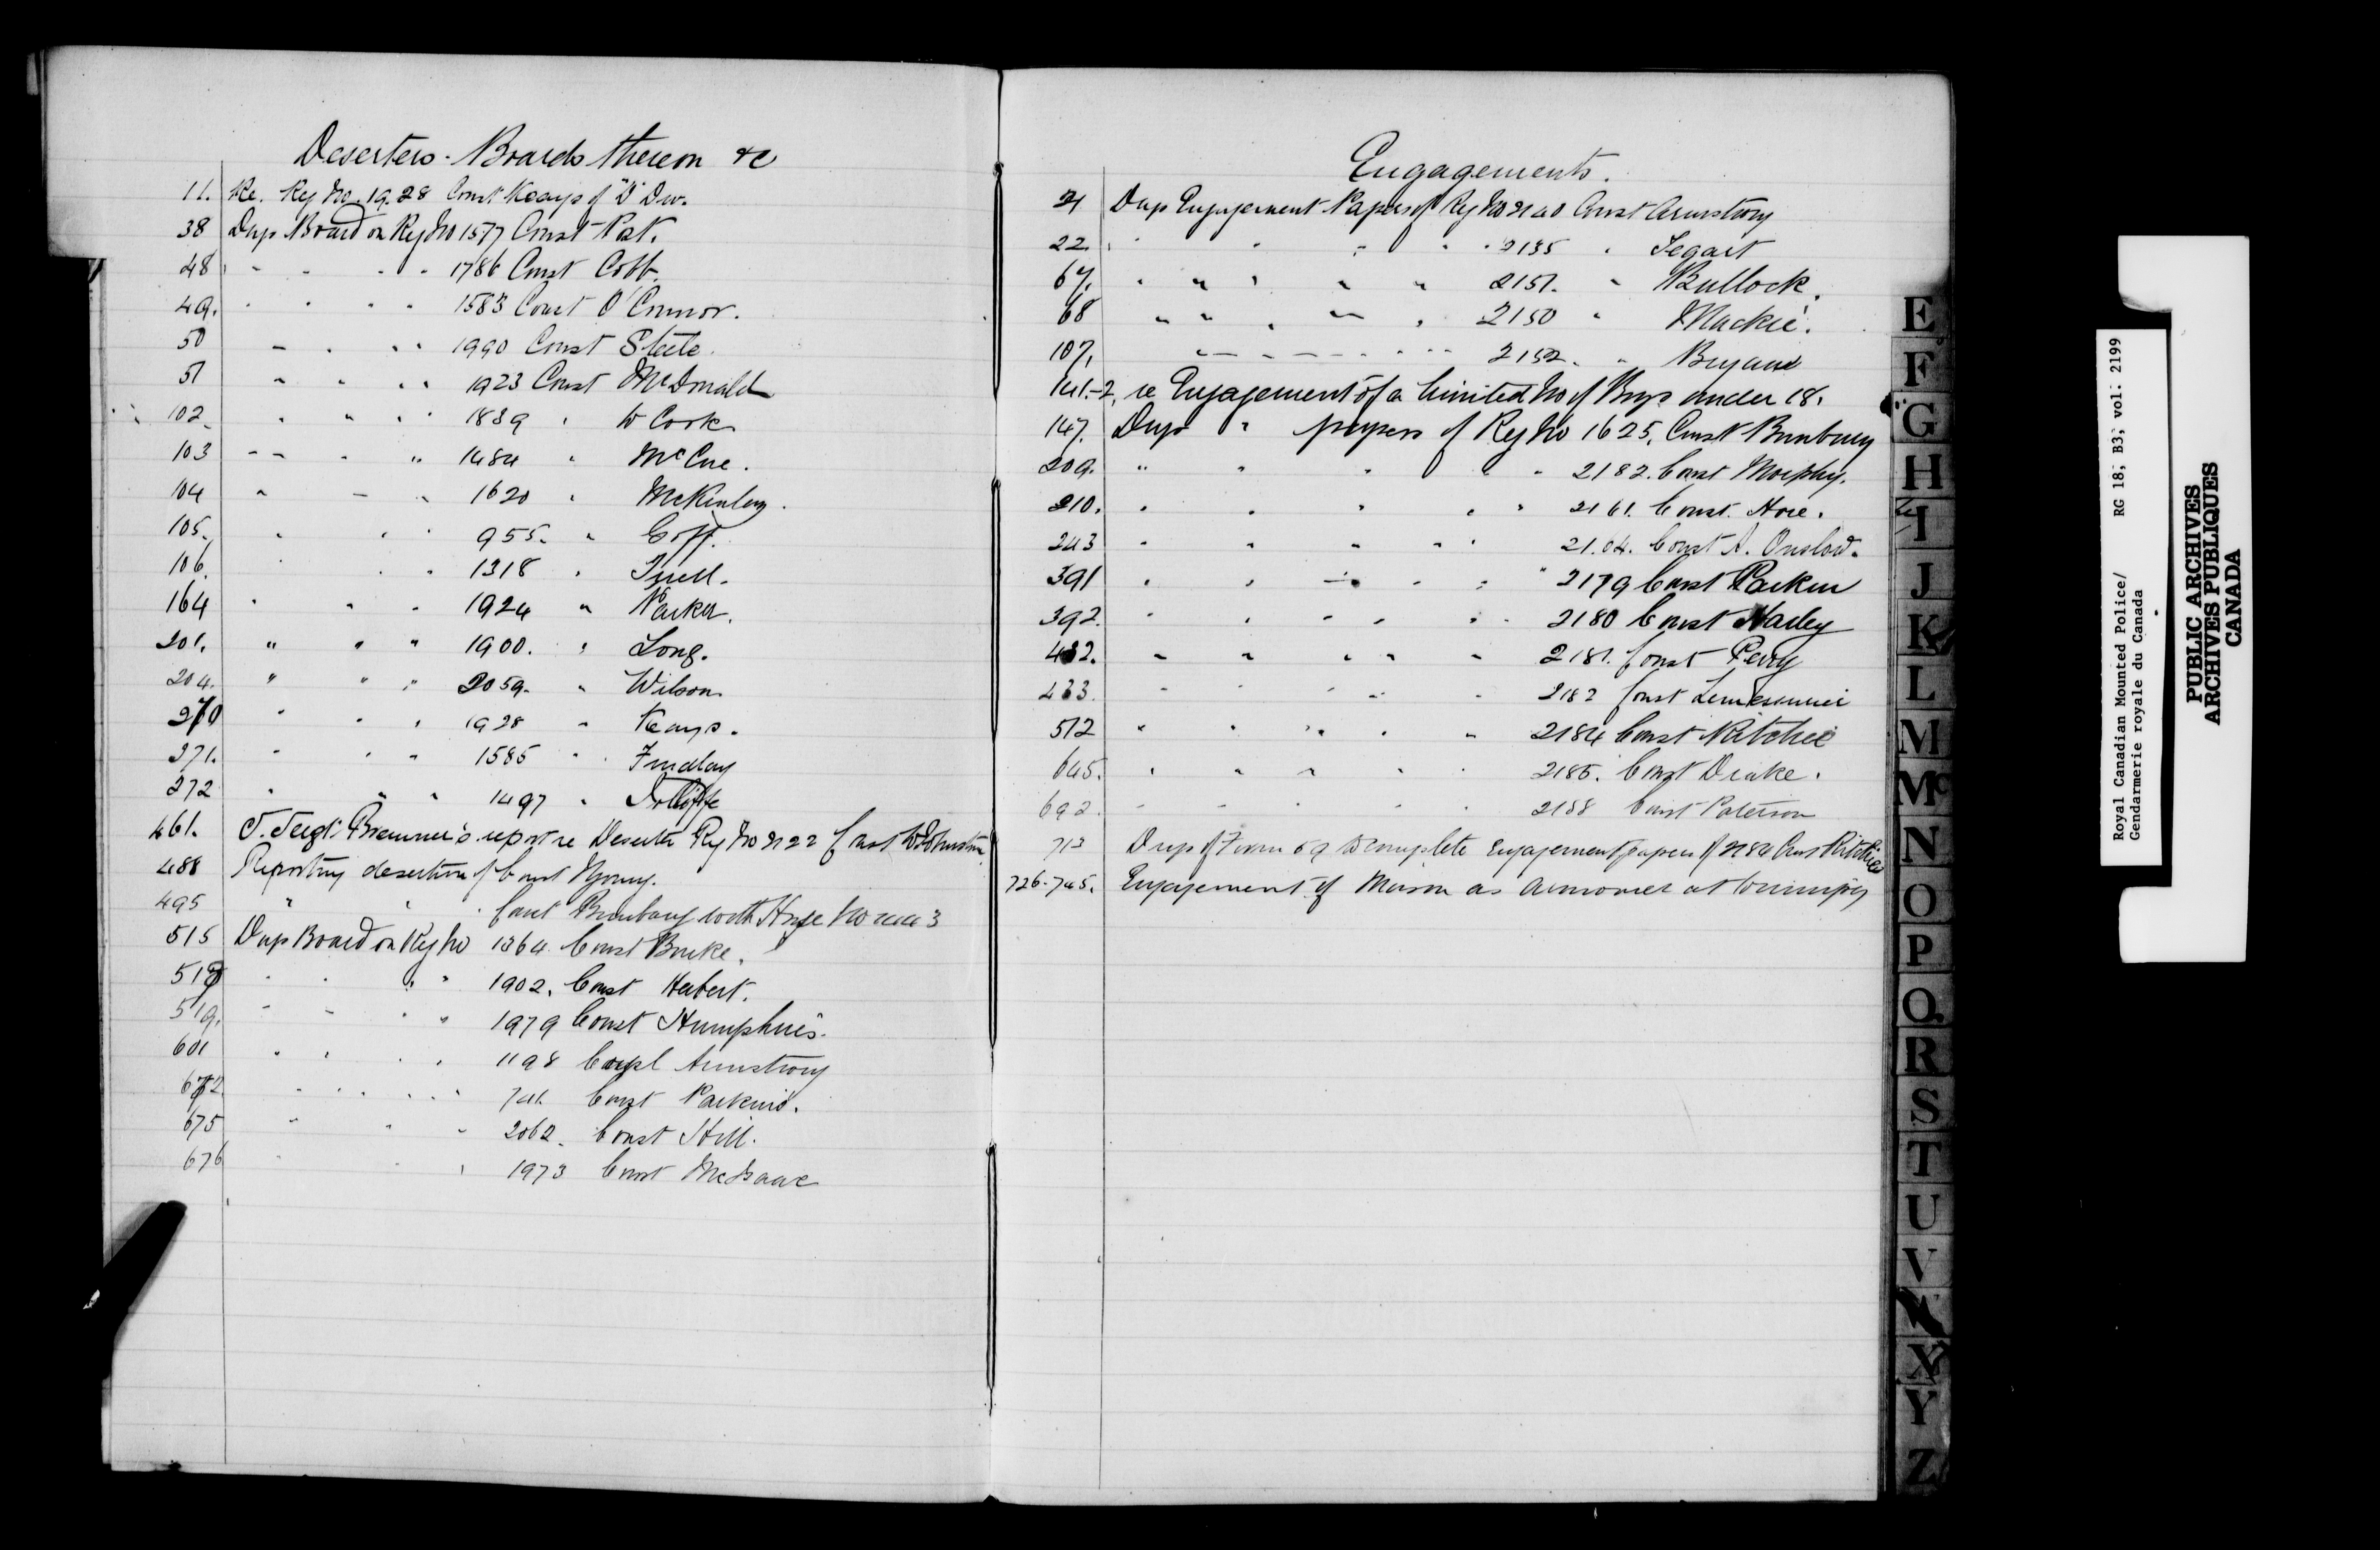 Deserters - Boards thereon &c
11. Re. Reg No. 1928 Const Keays of "D" Div.
38 Dup Board on Reg No 1577 Const Pat.
48 " " " " 1786 Const Cobb.
49. " " " " 1583 Const O'Connor.
50 " " " " 1990 Const Steele.
51 " " " " 1923 Const McDonald
102. " " " 1839 " W Cook
103 " " " " 1484 " McCue.
104 " " " 1620 " McKinley.
105. " " " 955. " Goff.
106. " " " 1318 " Tuell.
164 " " " 1924 " Parker.
201. " " " 1900. " Long.
204. " " " 2059. " Wilson.
270 " " " 1928 " Keays.
271. " " " 1585 " Findlay
272 " " " 1497 " Jolliffe
461. S. Sergt. Bremner's report re Deserter Reg No 2122 Const W Johnston
488 Reporting desertion of Const Young.
495 " " " Const Bunbury with Horse No
515 Dup Board on Reg No 1364 Const Burke.
518 " " " " 1902. Const Herbert.
519. " " " " 1979 Const Humphries.
601 " " " " 1198 Corpl Armstrong
672 " " " " 741. Const Parkins.
675 " " " 2062. Const Hill.
676 " " " 1973 Const McIsaac
Engagements.
21 Dup Engagement Papers of Reg No 2140 Const Armstrong
22. " " " " " 2135 " Segart
67. " " " " " 2151. " Bullock.
68 " " " " " 2150 " Mackie.
107. " " " " " 2152. " Bryant
141.-2. re Engagement of a limited No of Boys under 18.
147. Dup " papers of Reg No 1625, Const Bunbury
209. " " " " " 2182. Const Morphy.
210. " " " " " 2161. Const. Hore.
243 " " " " " 21.04. Const A. Onslow.
391 " " " " " 2179 Const Parker
392. " " " " " 2180 Const Harley
432. " " " " " 2181. Const Perry
433. " " " " " 2182 Const
512 " " " " " 2184 Const Ritchie
645. " " " " " 2185. Const Drake.
692. " " " " " 2188 Const Paterson
713 Dup of Form 69 to complete Engagement papers of 2184 Const Ritchie
726-745. Engagement of Mason as Armourer at Winnipeg
E
F
G
H
I
J
K
L
M
Mc
N
O
P
Q
R
S
T
U
V
X
Y
Z
Royal Canadian Mounted Police/ RG 18, B3, vol. 2199
Gendarmerie royale du Canada
PUBLIC ARCHIVES
ARCHIVES PUBLIQUES
CANADA